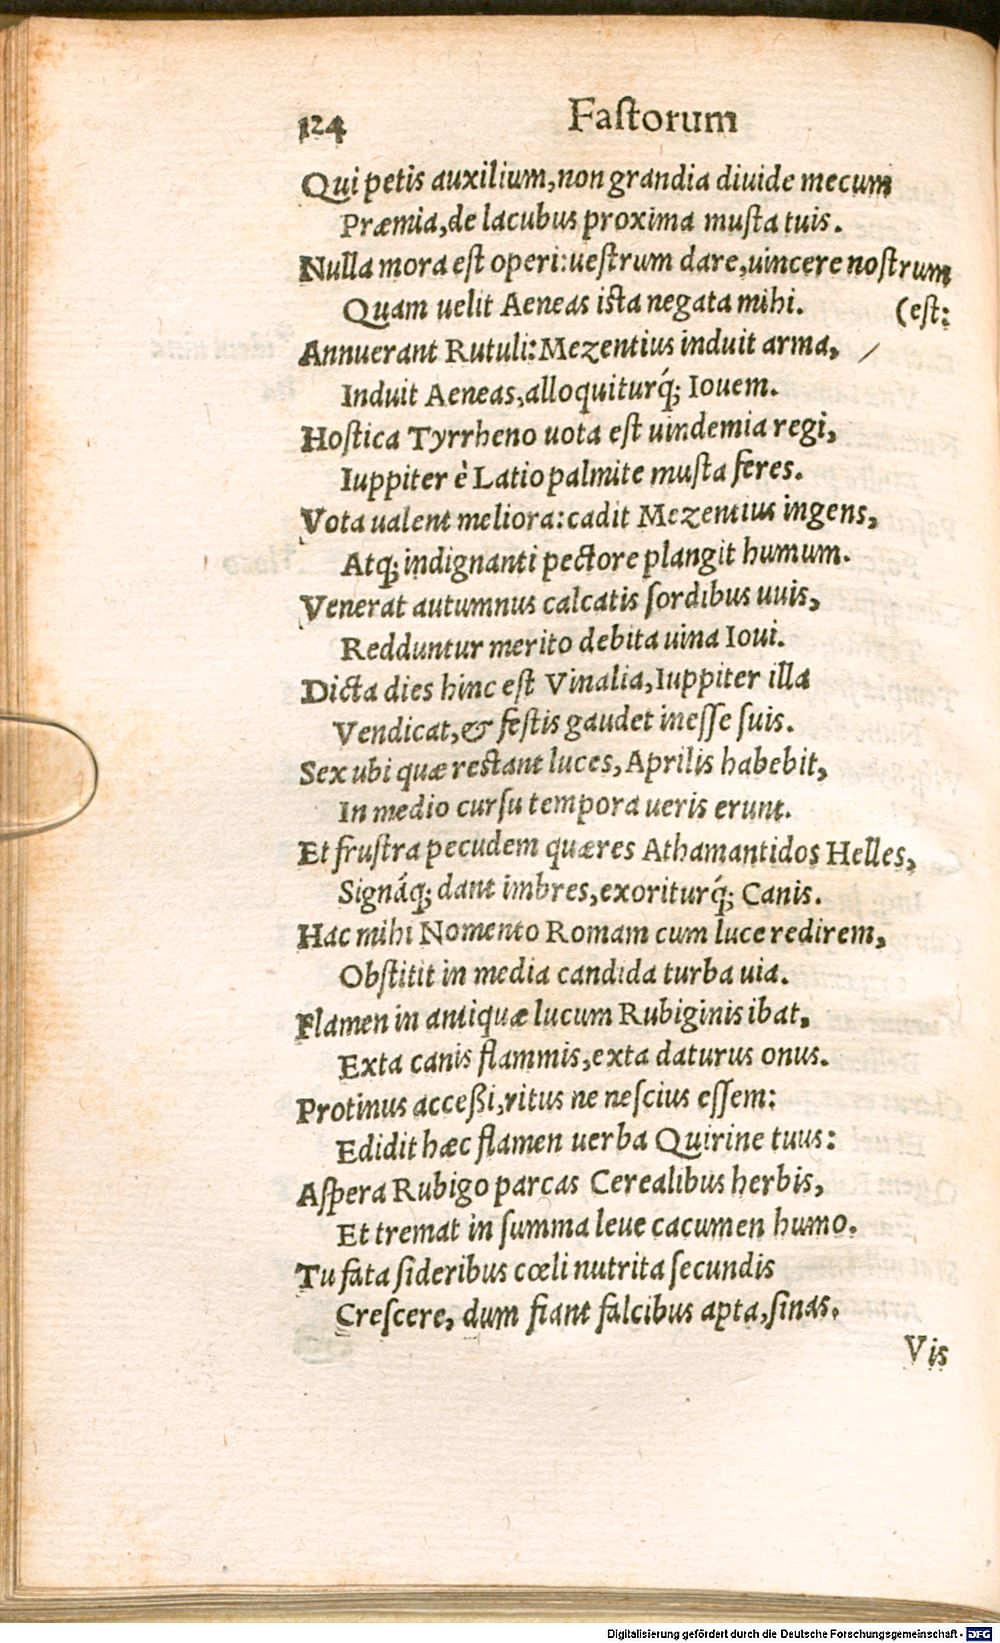 124 Faſtorum
Qui petis auxilium, non grandia diuide mecum
Præmia, de lacubus proxima muſta tuis.
Nulla mora eſt operi: ueſtrum dare, uincere noſtrum
Quam uelit Aeneas iſta negata mihi. (eſt:
Annuerant Rutuli: Mezentius induit arma,
Induit Aeneas, alloquiturq́; Iouem.
Hoſtica Tyrrheno uota eſt uindemia regi,
Iuppiter è Latio palmite muſta feres.
Vota ualent meliora: cadit Mezentius ingens,
Atq; indignanti pectore plangit humum.
Venerat autumnus calcatis ſordibus uuis,
Redduntur merito debita uina Ioui.
Dicta dies hinc eſt Vinalia, Iuppiter illa
Vendicat, & feſtis gaudet ineſſe ſuis.
Sex ubi quæ reſtant luces, Aprilis habebit,
In medio curſu tempora ueris erunt.
Et fruſtra pecudem quæres Athamantidos Helles,
Signáq; dant imbres, exoriturq́; Canis.
Hac mihi Nomento Romam cum luce redirem,
Obſtitit in media candida turba uia.
Flamen in antiquæ lucum Rubiginis ibat,
Exta canis flammis, exta daturus onus.
Protinus acceßi, ritus ne neſcius eſſem:
Edidit hæc flamen uerba Quirine tuus:
Aſpera Rubigo parcas Cerealibus herbis,
Et tremat in ſumma leue cacumen humo.
Tu ſata ſideribus cœli nutrita ſecundis
Creſcere, dum fiant falcibus apta, ſinas.
Vis
Digitalisierung gefördert durch die Deutsche Forschungsgemeinschaft - DFG